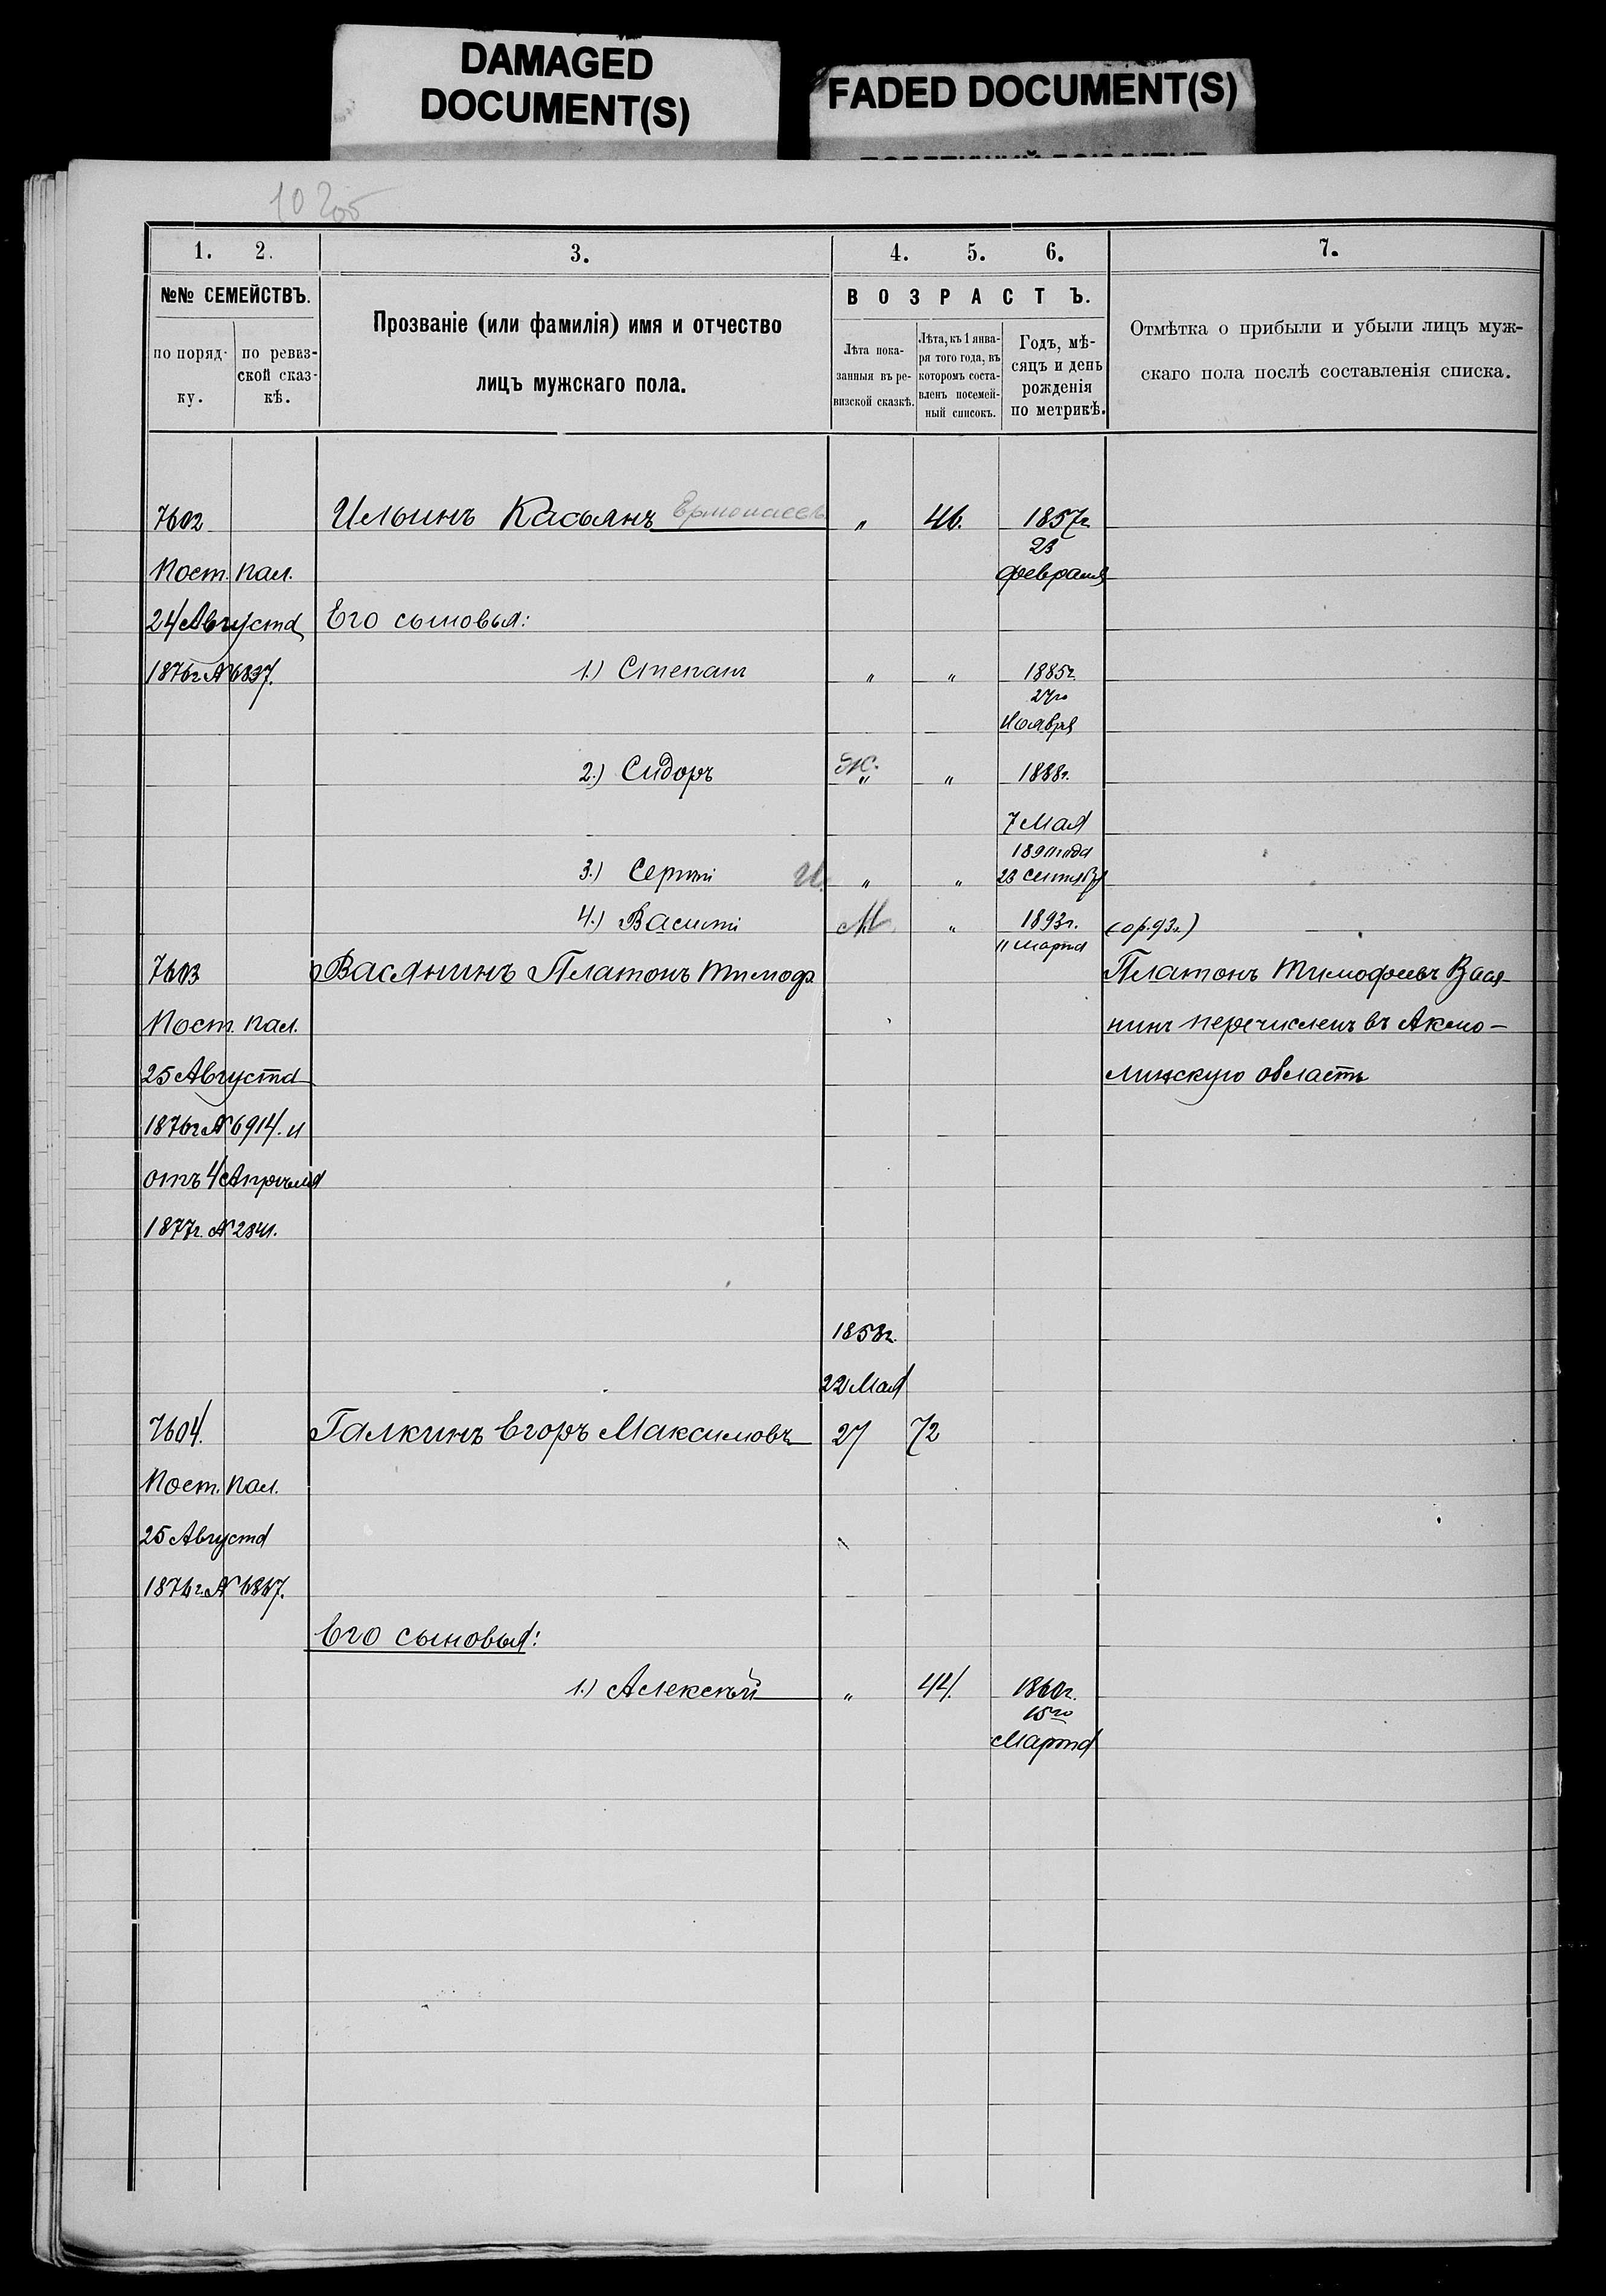 DAMAGED
DOCUMENT(S)
FADED DOCUMENT(S)
1. 2. 3. 4. 5. 6. 7.
№№ СЕМЕЙСТВЪ.
по поряд-
ку.
по ревиз-
ской сказ-
кѣ.
Прозваніе (или фамилія) имя и отчество
лицъ мужскаго пола.
ВОЗРАСТЪ.
Лѣта пока-
занныя въ ре-
визской сказкѣ.
Лѣта, къ 1 янва-
ря того года, въ
которомъ соста-
вленъ посемей-
ный списокъ.
Годъ, мѣ-
сяцъ и день
рожденія
по метрикѣ.
Отмѣтка о прибыли и убыли лицъ муж-
скаго пола послѣ составленія списка.
7602 Ильинъ Касьянъ " 46. 1857г
23
Пост. пал. февраля
24 Августа Его сыновья:
1876г № 6837. 1.) Степанъ " " 1885г.
27го
Ноября
2.) Сидоръ Ж. " " 1888г.
7 Мая
3.) Сергѣй И. " " 1890 года
23 сентября
4.) Василій М " 1893г. (ор. 93г.)
11 марта
7603 Васянинъ Платонъ Тимоф Платонъ Тимофеевъ Вася-
Пост. пал. нинъ перечисленъ въ Акмо-
25 Августа линскую область
1876г № 6914. и
отъ 4 Апрѣля
1877г. № 2341.
1858г.
22 Мая
7604. Галкинъ Егоръ Максимовъ 27 72
Пост. пал.
25 Августа
1876г. № 6867.
Его сыновья:
1.) Алексѣй " 44. 1860г.
15го
Марта